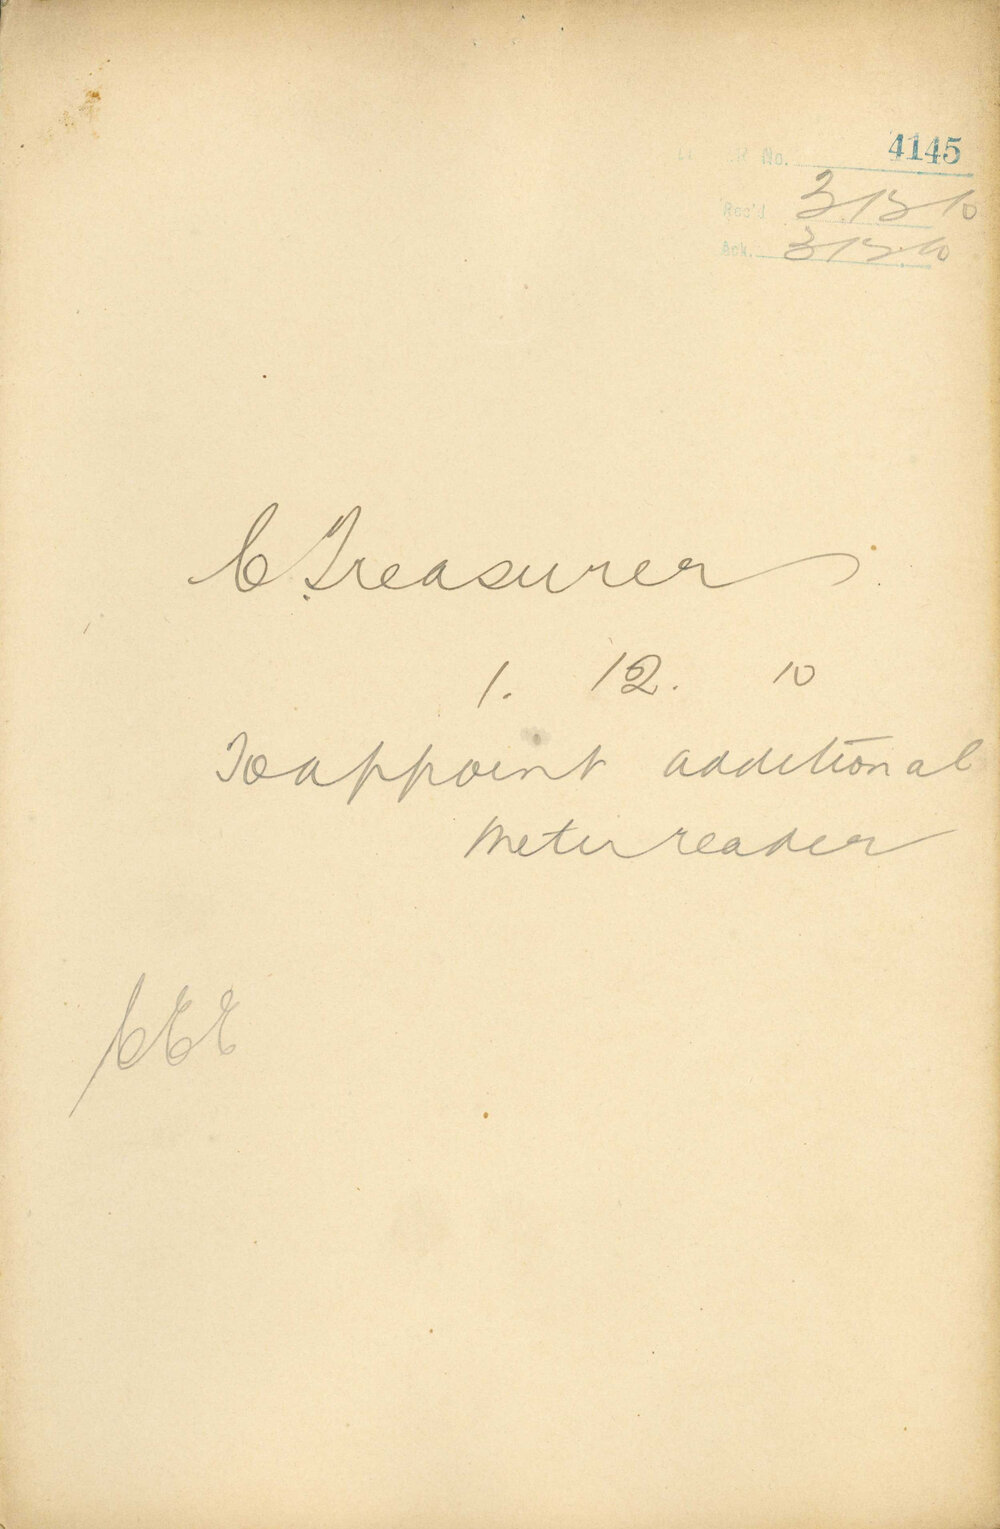 No. 4145
Rec'd 3.12.10
Ack. 3.12.10
C Treasurer
1. 12. 10
To appoint additional
Meter reader
CEE